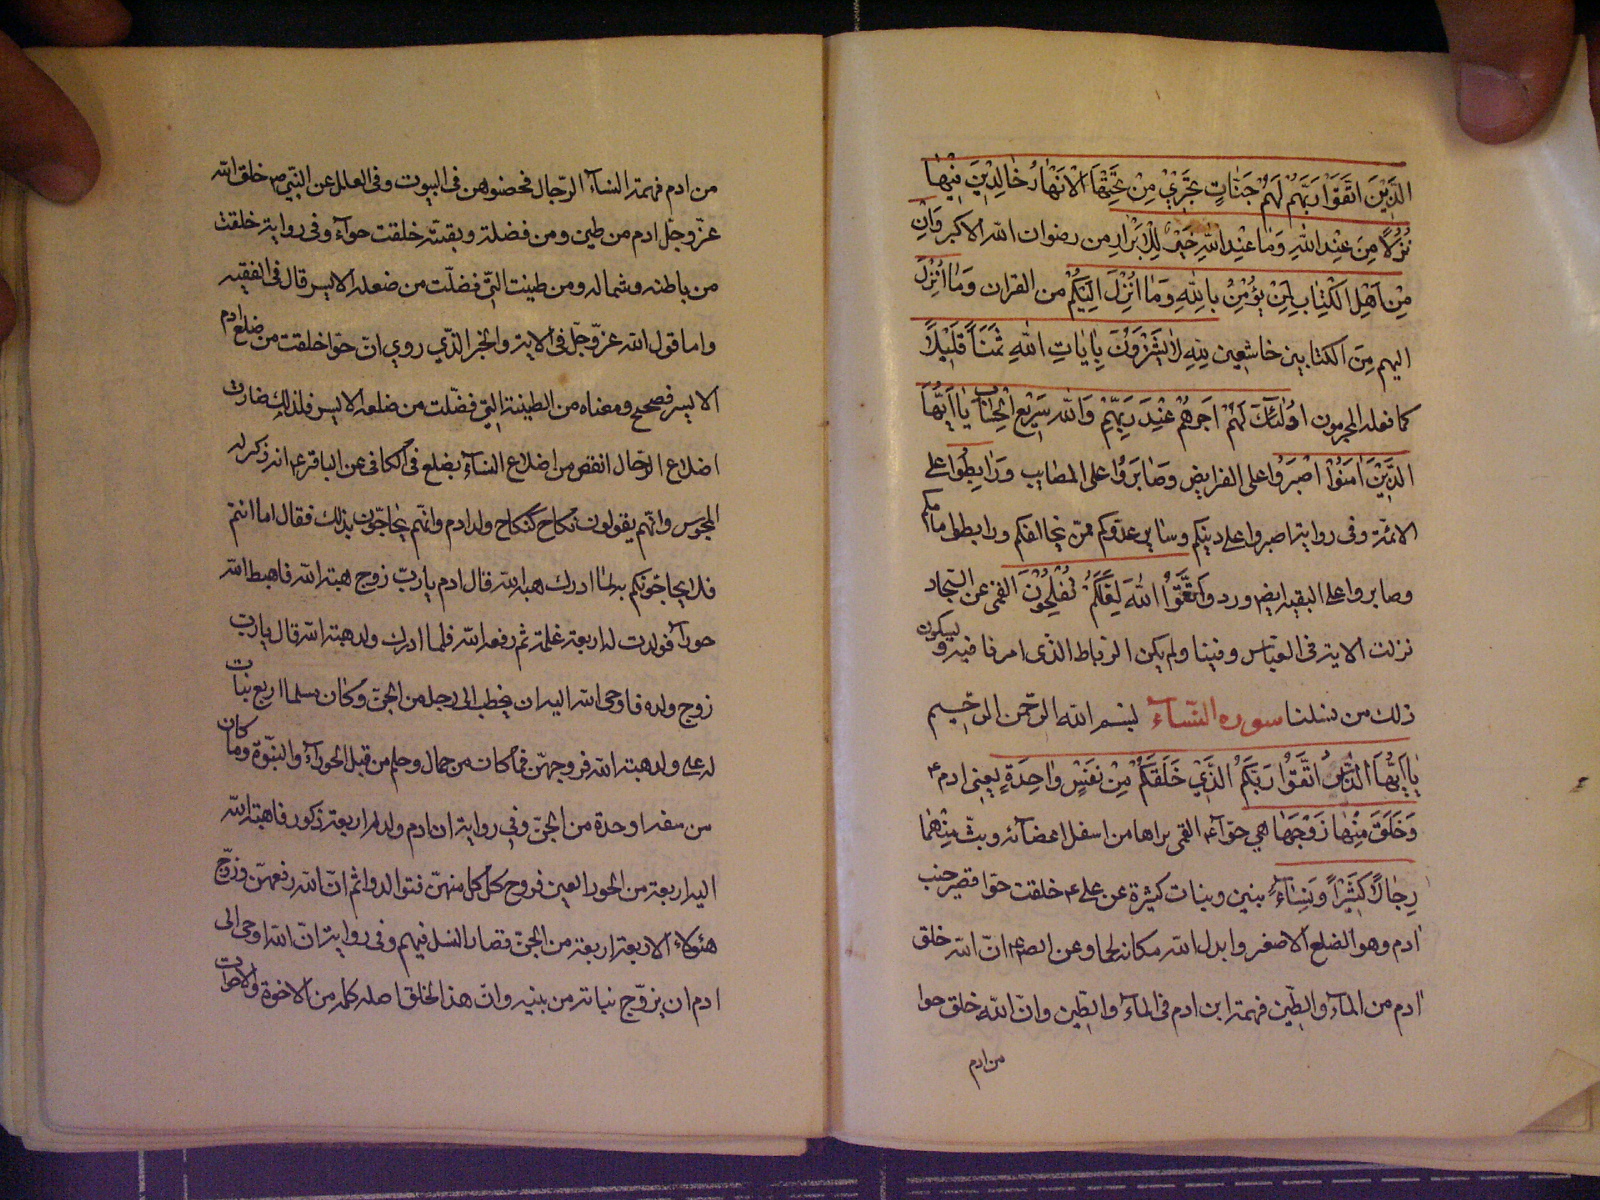 الَّذِينَ اتَّقَوْا رَبَّهُمْ لَهُمْ جَنَّاتٍ تَجْرِي مِنْ تَحْتِهَا الْانَهْارُ خٰالِدِينَ فِيْهٰا
نُزُلًا مِنْ عِنْدِ اللّٰهِ وَمٰا عِنْدَ اللّٰهِ خَيْرٌ لِلْاَبْرٰارِ من رضوان الله الاكبر وَاِنَّ
مِنْ اَهْلِ الْكِتٰابِ لَمَنْ يُؤْمِنُ بِاللّٰهِ وَمٰا اُنْزِلَ اِلَيْكُمْ من القران وَمٰا اُنْزِلَ
اليهم مِنَ الكتابين خاشعين لِلّٰهِ لٰا يَشْتَرُونَ بِاٰيٰاتِ اللّٰهِ ثَمَنًا قَلِيلًا
كما فعله المجرمون اوُلٰئِكَ لَهُمْ اَجْرُهُمْ عِنْدَ رَبِّهِمْ وَاللّٰه سَرِيْعُ الْحِسٰابِ يٰا اَيُّهَا
الَّذِيْنَ اٰمَنُوْا اصْبِرُوا على الفرايض وَصٰابِرُوْا على المصايب وَرٰابِطُوا على
الائمة وفى رواية اصبروا على دينكم وصابروا عدوكم ممن يخالفكم ورابطوا امامكم
وصابروا على التقية ايضا ورد وَاتَّقُوا اللّٰهَ لَعَلَّكُمْ تُفْلِحُوْنَ القمى عن السجاد
نزلت الاية فى العباس وفينا ولم يكن الرباط الذى امرنا فيه وسيكون
ذلك من نسلنا سوره النسآء بسم الله الرّحمن الرّحيم
يٰا اَيُّهَا النّٰاسُ اتَّقُوْا رَبَّكُمُ الَّذِيْ خَلَقَكُمْ مِنْ نَفْسٍ وٰاحِدَةٍ يعنى ادم ع
وَخَلَقَ مِنْهٰا زَوْجَهٰا هي حوّآء القمى براها من اسفل اعضآئه وبثّ مِنْهُمٰا
رِجٰالًا كَثِيْرًا وَنِسٰاءً بنين وبنات كثيرة عن على ع خلقت حوا قصير جنب
ادم وهو الضلع الاصغر وابدل الله مكانه لحما وعن الصع انّ الله خلق
ادم من المآء والطّين فهمة ابن ادم فى المآء والطّين وانّ الله خلق حوا
من ادم
من ادم فهمة النسآء الرّجال فحصنوهن فى البيوت وفى العلل عن النّبي ص خلق الله
عزّ وجلّ ادم من طين ومن فضلته وبقيته خلقت حوآء وفى رواية خلقت
من باطنه وشماله ومن طينته الّتي فضلت من ضلعه الايسر قال فى الفقيه
واما قول الله عزّ وجلّ فى الاية والخبر الّذي روي انّ حوّا خلقت من ضلع ادم
الايسر فصحيح ومعناه من الطينة الّتي فضلت من ضلعه الايسر فلذلك صارت
اضلاع الرّجال انقص من اضلاع النسآء بضلع فى الكافى عن الباقر ع انه ذكر له
المجوس وانّهم يقولون نكاح كنكاح ولد ادم وانّهم يحاجّون بذلك فقال اما انتم
فلا يحاجّونكم به لما ادرك هبة الله قال ادم يا ربّ زوج هبة الله فاهبط الله
حورآء فولدت له اربعة غلمة ثم رفعه الله فلما ادرك ولد هبة الله قال يا رب
زوج ولده فاوحى الله اليه ان يخطب الى رجل من الجنّ وكان مسلما اربع بنات
له على ولد هبة الله فزوجهنّ فما كان من جمال وحلم من قبل الحورآء والنبوّة وما كان
من سفه او حدة من الجنّ وفى رواية ان ادم ولد له اربعة ذكور فاهبط الله
اليه اربعة من الحور العين فزوج كل كل منهنّ فتوالدوا ثم انّ الله رفعهنّ وزوّج
هئولاء الاربعة اربعة من الجنّ فصار النسل فيهم وفى رواية انّ الله اوحى الى
ادم ان يزوّج بناته من بنيه وانّ هذا الخلق اصله كله من الاخوة والاخوات